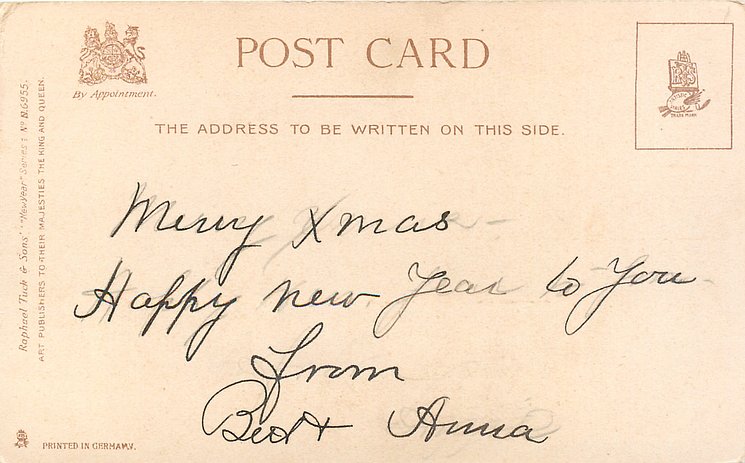 By Appointment.
POST CARD
THE ADDRESS TO BE WRITTEN ON THIS SIDE.
TRADE MARK
Raphael Tuck & Sons' "New Year" Series: Nº N.6955.
ART PUBLISHERS TO THEIR MAJESTIES THE KING AND QUEEN.
Merry Xmas
Happy new Year to You
from
Bert Anna
PRINTED IN GERMANY.